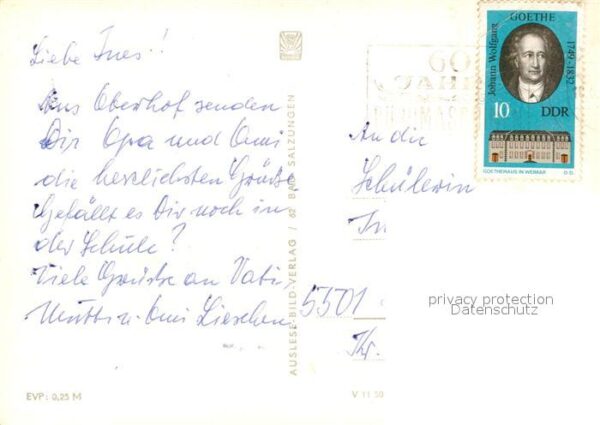 Liebe Ines!!
Aus Oberhof senden
Dir Opa und Omi
die herzlichsten Grüße
Gefällt es Dir noch in
der Schule?
Viele Grüße an Vati
Mutti u. Omi Lieschen
EVP: 0,25 M
AUSLESE-BILD-VERLAG / 62 BAD SALZUNGEN
V 11 50
60
JAHRE
Johann Wolfgang
GOETHE
1749-1832
10
DDR
GOETHEHAUS IN WEIMAR
An die
Schülerin
5501
Thr.
privacy protection
Datenschutz